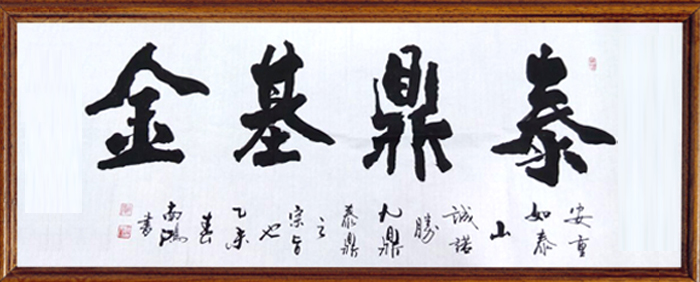 泰鼎基金
安重
如泰
山
誠諾
勝
九鼎
泰鼎
之
宗旨
也
乙未
春
南鴻
書